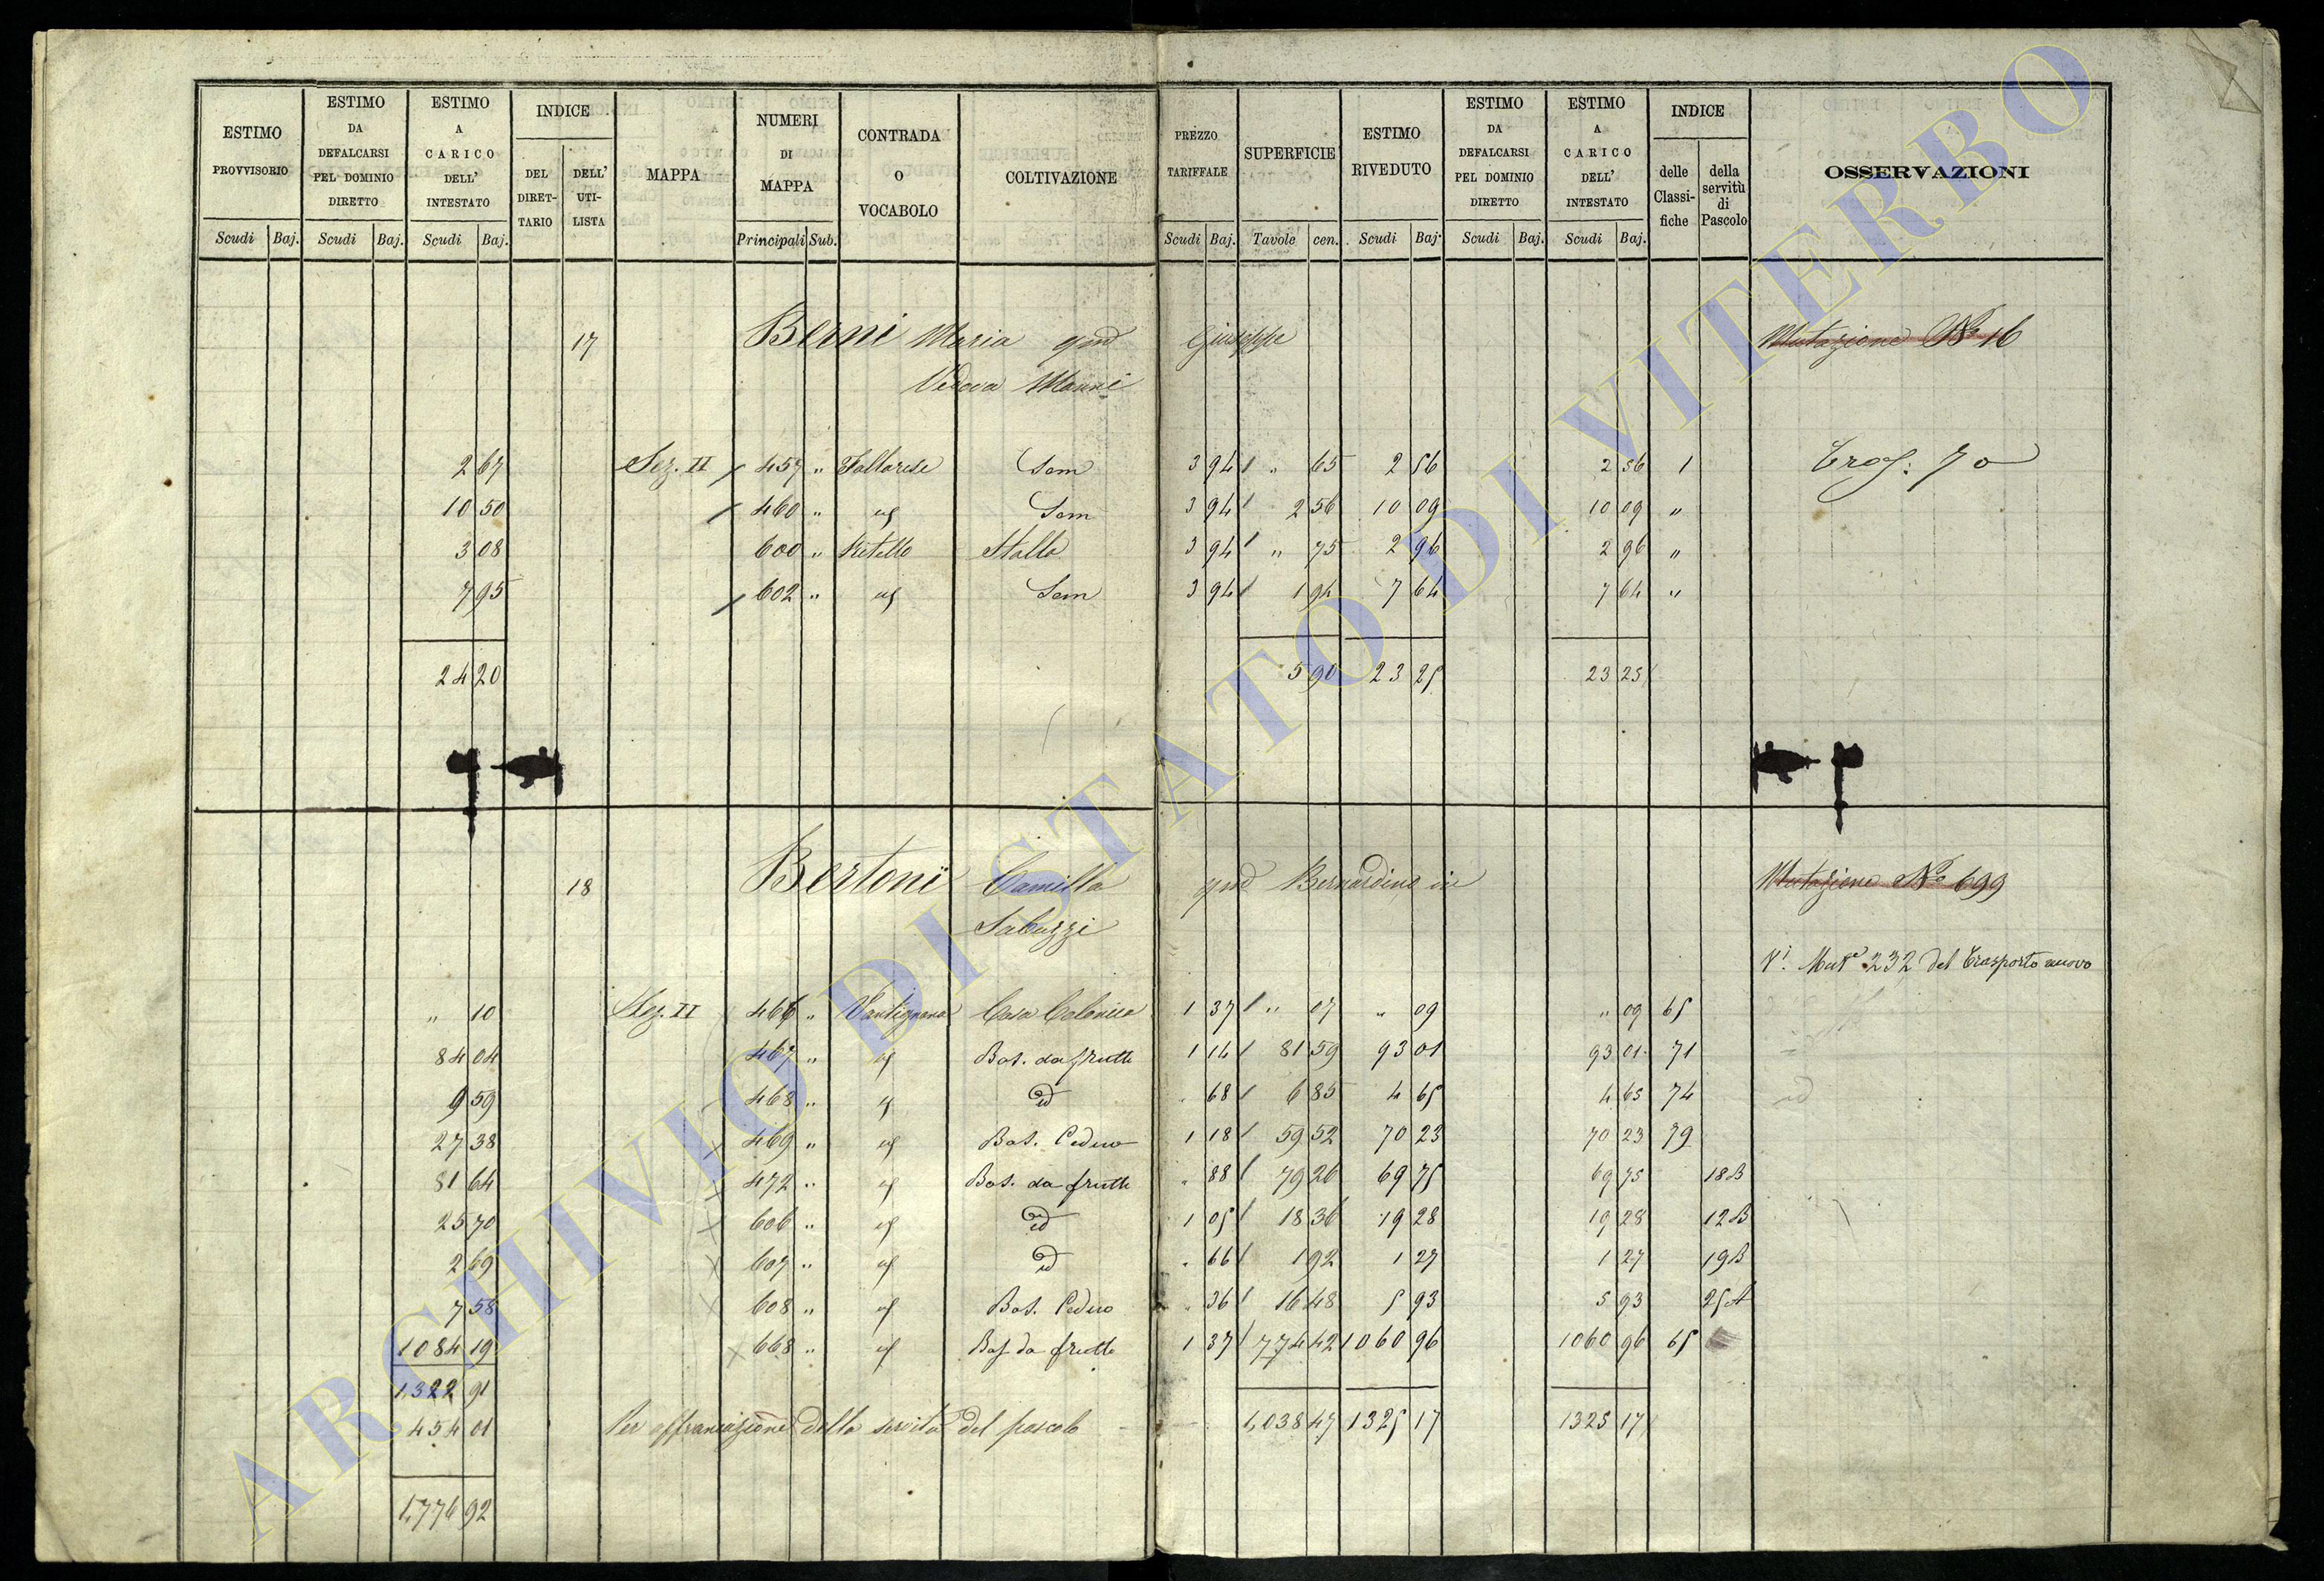 ESTIMO PROVVISORIO
ESTIMO DA DEFALCARSI PEL DOMINIO DIRETTO
ESTIMO A CARICO DELL' INTESTATO
INDICE
DEL DIRET-TARIO
DELL' UTI-LISTA
MAPPA
NUMERI DI MAPPA
CONTRADA O VOCABOLO
COLTIVAZIONE
PREZZO TARIFFALE
SUPERFICIE
ESTIMO RIVEDUTO
ESTIMO DA DEFALCARSI PEL DOMINIO DIRETTO
ESTIMO A CARICO DELL' INTESTATO
INDICE
delle Classi-fiche
della servitù di Pascolo
OSSERVAZIONI
Scudi Baj. Scudi Baj. Scudi Baj. Principali Sub. Scudi Baj. Tavole cen. Scudi Baj. Scudi Baj. Scudi Baj.
17 Berni Maria qm Giuseppe Mutazione N° 16
Vedova Manni
2 67 Sez. II 457 " Sem 3 94 " 65 2 56 2 56 1
10 50 460 " Sem 3 94 2 56 10 09 10 09 "
3 08 600 " Stalla 3 94 " 75 2 96 2 96 "
7 95 602 " Sem 3 94 1 94 7 64 7 64 "
24 20 5 90 23 25 23 25
18 Bertoni Camilla qm Bernardino in Mutazione N° 699
Sabuzzi
232 del Trasporto nuovo
" 10 Sez. II 466 " Casa Colonica 1 37 " 07 " 09 " 09 65
84 04 467 " Bos. da frutto 1 14 81 59 93 01 93 01 71
9 59 468 " id " 68 6 85 4 65 4 65 74
27 38 469 " Bos. Ceduo 1 18 59 52 70 23 70 23 79
81 64 472 " Bos. da frutto " 88 79 26 69 75 69 75 18B
25 70 606 " id 1 05 18 36 19 28 19 28 12B
2 69 607 " id " 66 1 92 1 27 1 27 19B
7 58 608 " Bos. Ceduo " 36 16 48 5 93 5 93 25A
1084 19 668 " Bos da frutto 1 37 774 42 1060 96 1060 96 65
1322 91
454 01 Per affrancazione della servitù del pascolo 1,038 47 1325 17 1325 17
1,776 92
ARCHIVIO DI STATO DI VITERBO